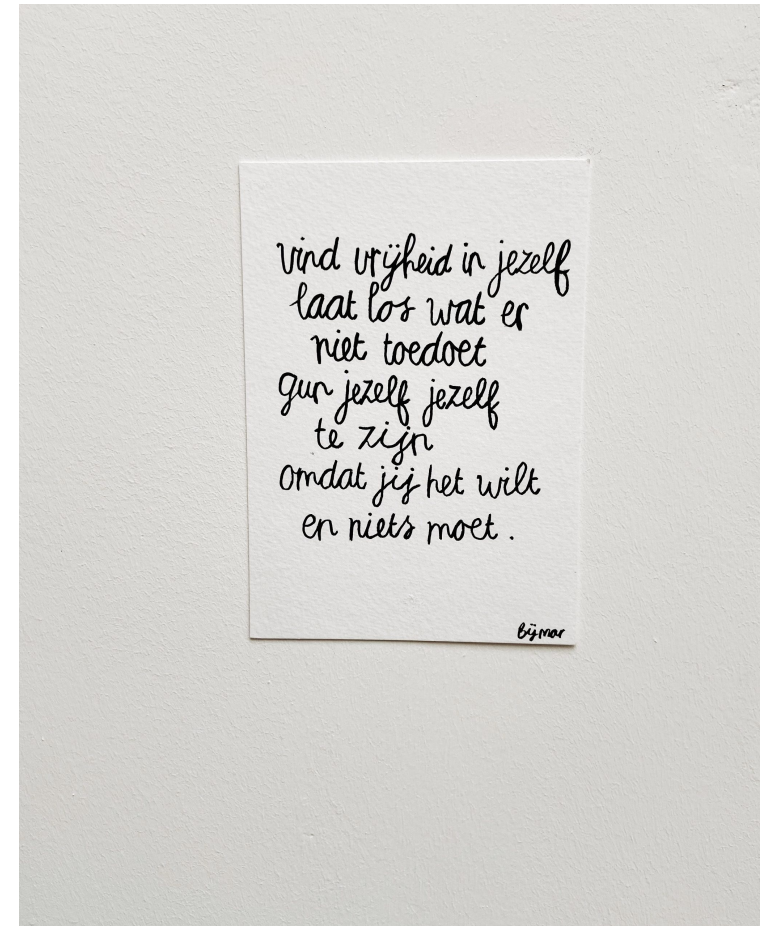 vind vrijheid in jezelf
laat los wat er
niet toedoet
gun jezelf jezelf
te zijn
omdat jij het wilt
en niets moet.
Bijmar